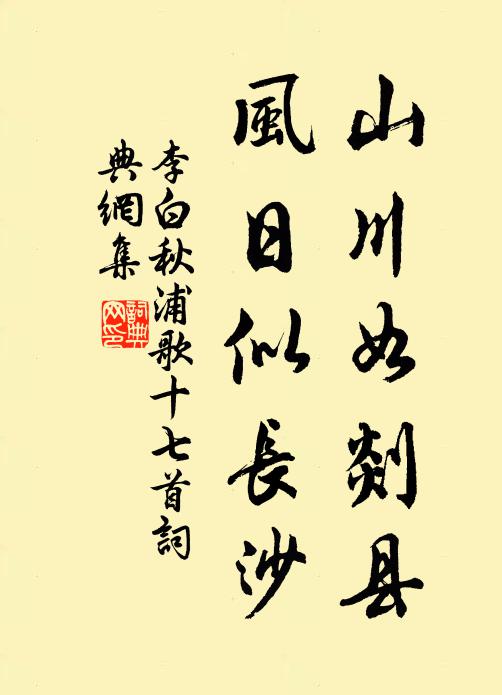 山川如剡县
風日似長沙
李白秋浦歌十七首詞
典網集
詞典网印